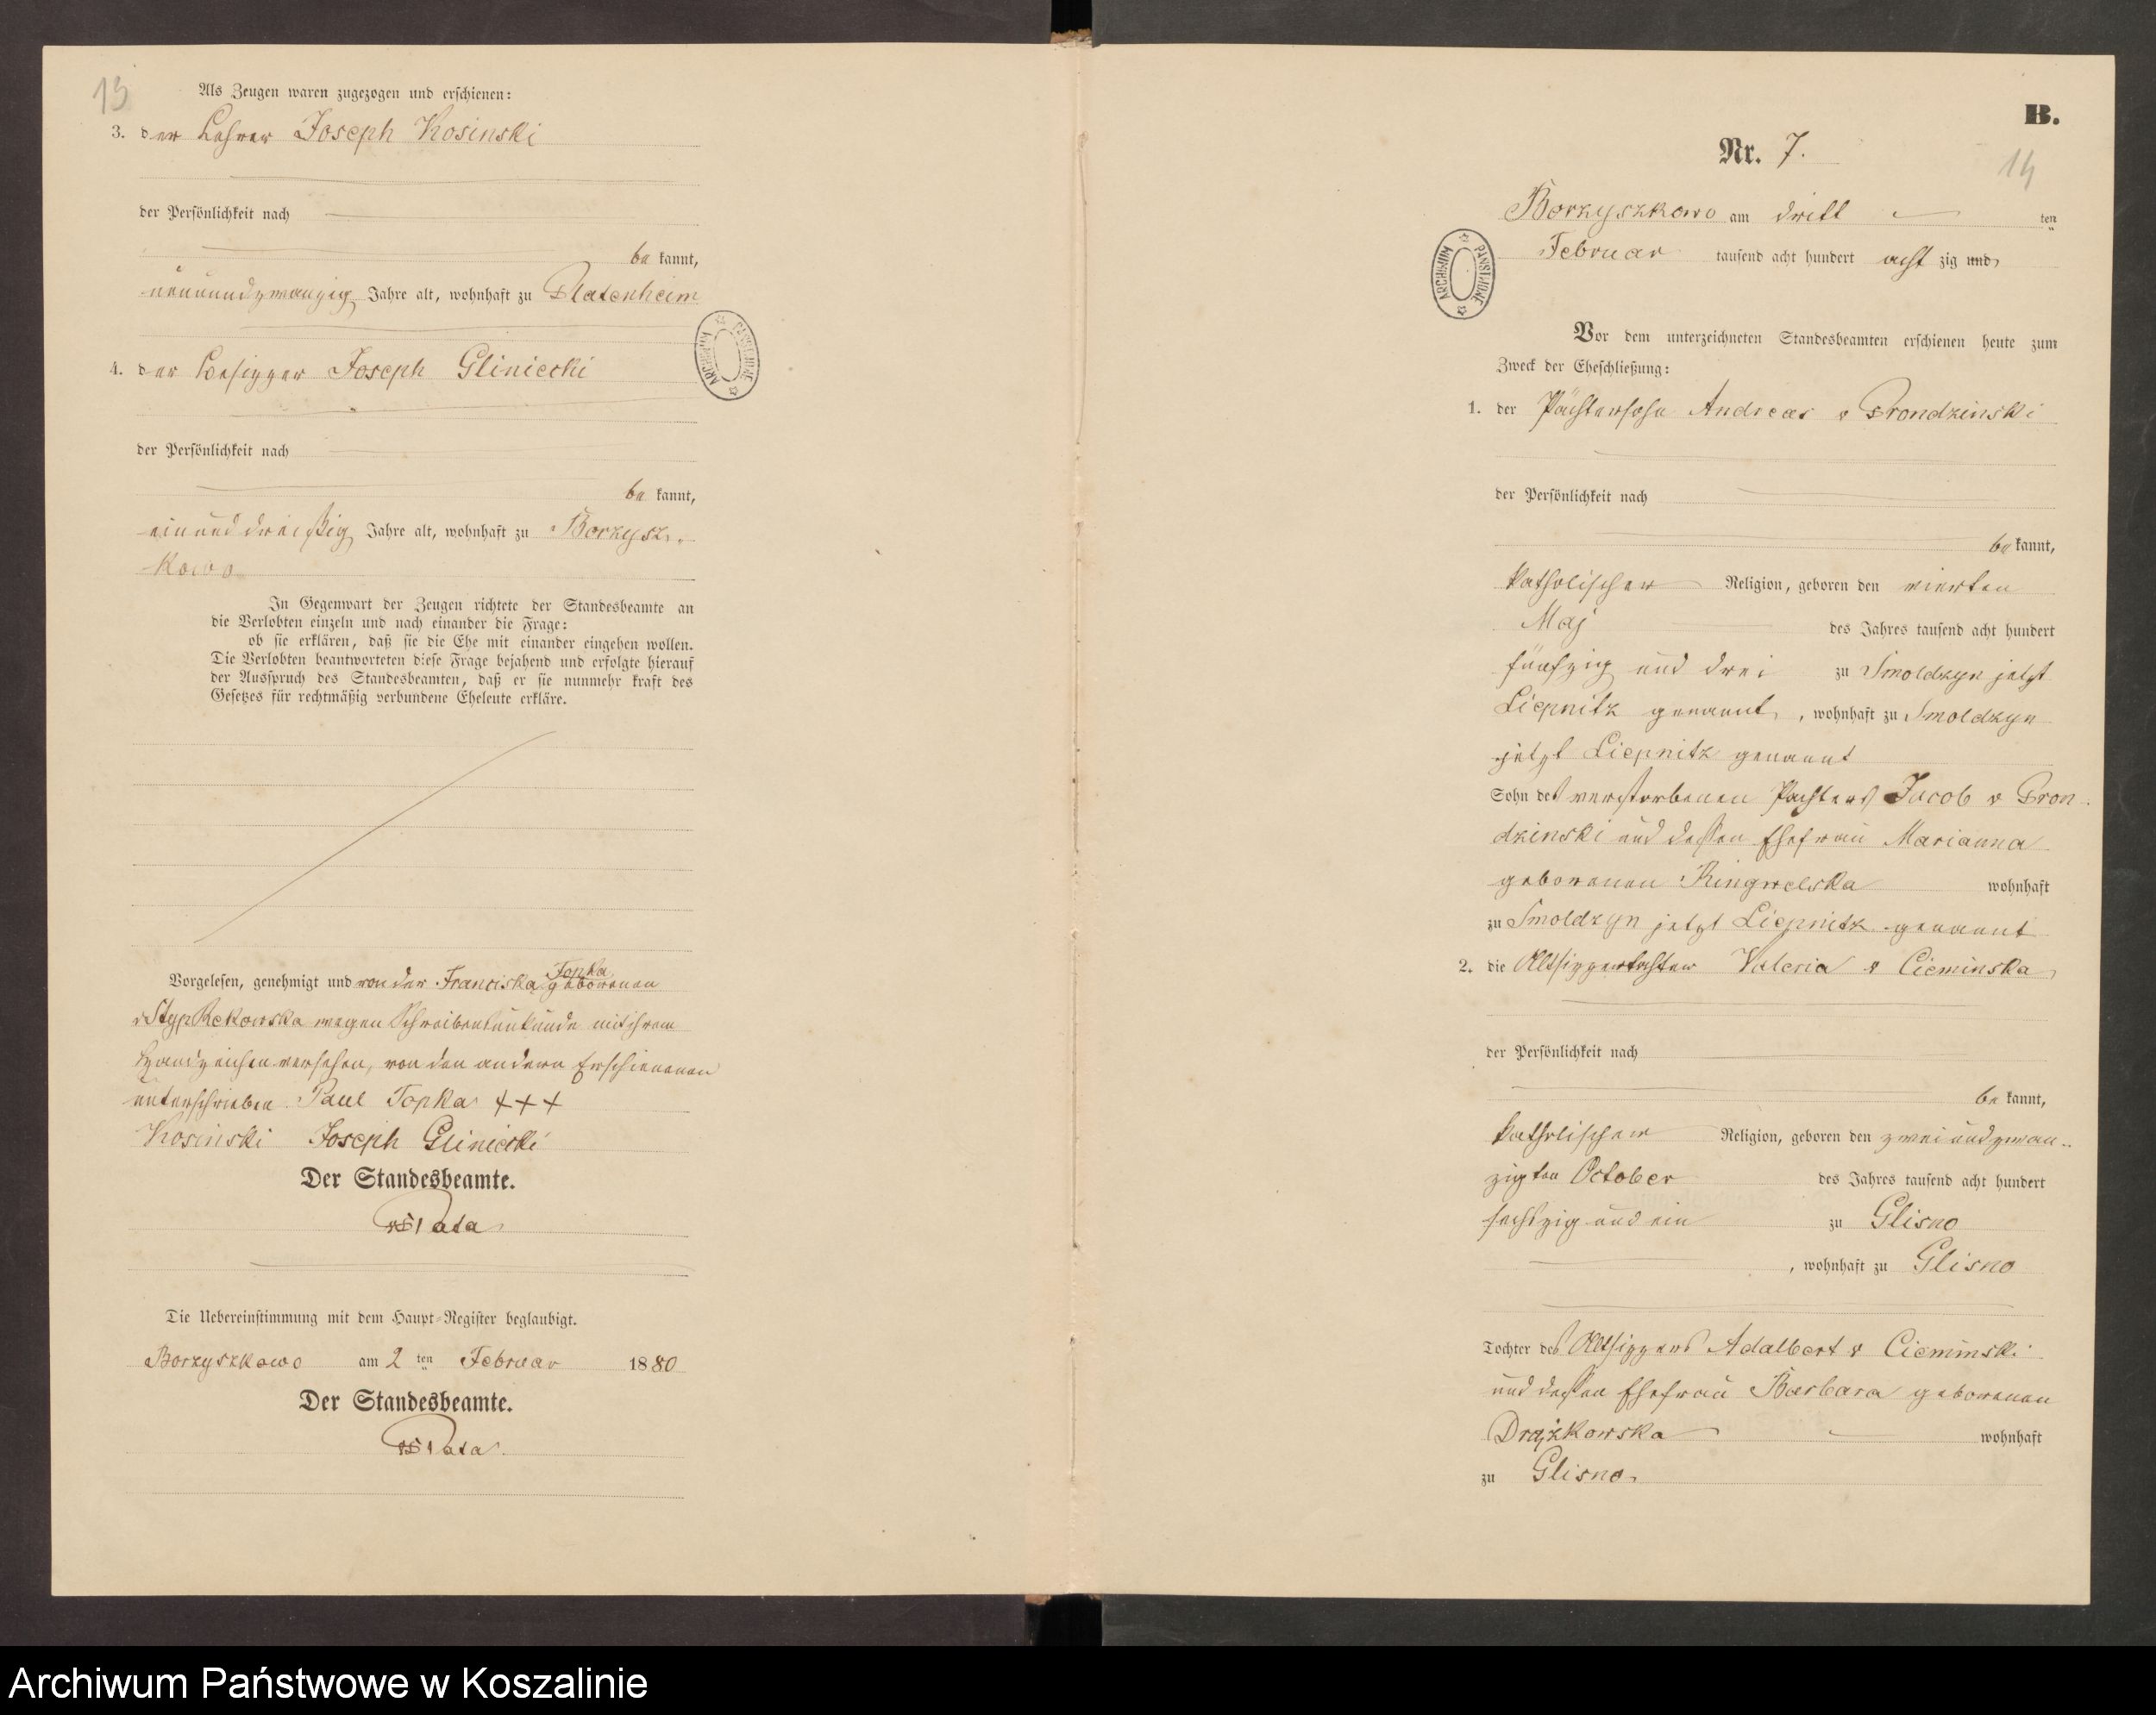 13
Als Zeugen waren zugezogen und erschienen:
3. der Lehrer Joseph Kosinski
der Persönlichkeit nach
be kannt,
neunundzwanzig Jahre alt, wohnhaft zu Platenheim
4. der Besitzer Joseph Gliniecki
der Persönlichkeit nach
be kannt,
einunddreißig Jahre alt, wohnhaft zu Borzysz-
kowo
In Gegenwart der Zeugen richtete der Standesbeamte an
die Verlobten einzeln und nach einander die Frage:
ob sie erklären, daß sie die Ehe mit einander eingehen wollen.
Die Verlobten beantworteten diese Frage bejahend und erfolgte hierauf
der Ausspruch des Standesbeamten, daß er sie nunmehr kraft des
Gesetzes für rechtmäßig verbundene Eheleute erkläre.
Vorgelesen, genehmigt und von der Franciska Topka geborenen
v Styp Rekowska wegen Schreibensunkunde mit ihrem
Handzeichen versehen, von den andern Erschienenen
unterschrieben Paul Topka +++
Kosinski Joseph Gliniecki
Der Standesbeamte.
Die Uebereinstimmung mit dem Haupt-Register beglaubigt.
Borzyszkowo am 2 ten Februar 1880
Der Standesbeamte.
B.
Nr. 7.
14
Borzyszkowo am dritt ten
Februar tausend acht hundert acht zig und
ARCHIWUM PAŃSTWOWE
Vor dem unterzeichneten Standesbeamten erschienen heute zum
Zweck der Eheschließung:
1. der Pächtersohn Andreas v Prondzinski
der Persönlichkeit nach
be kannt,
katholischer Religion, geboren den vierten
Maj des Jahres tausend acht hundert
fünfzig und drei zu Smoldzyn jetzt
Liepnitz genannt, wohnhaft zu Smoldzyn
jetzt Liepnitz genannt
Sohn des verstorbenen Pächters Jacob v Pron-
dzinski und dessen Ehefrau Marianna
geborenen Ringwelska wohnhaft
zu Smoldzyn jetzt Liepnitz genannt
2. die Altsitzertochter Valeria v Cieminska
der Persönlichkeit nach
be kannt,
katholischer Religion, geboren den zweiundzwan-
zigten October des Jahres tausend acht hundert
sechszig und ein zu Glisno
, wohnhaft zu Glisno
Tochter des Altsitzers Adalbert v Cieminski
und dessen Ehefrau Barbara geborenen
Drążkowska wohnhaft
zu Glisno
Archiwum Państwowe w Koszalinie